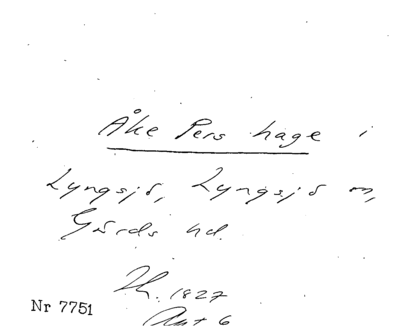 Åke Pers hage i
Lyngsjö, Lyngsjö sn,
Gärds hd.
Lh. 1827
Akt 6
Nr 7751